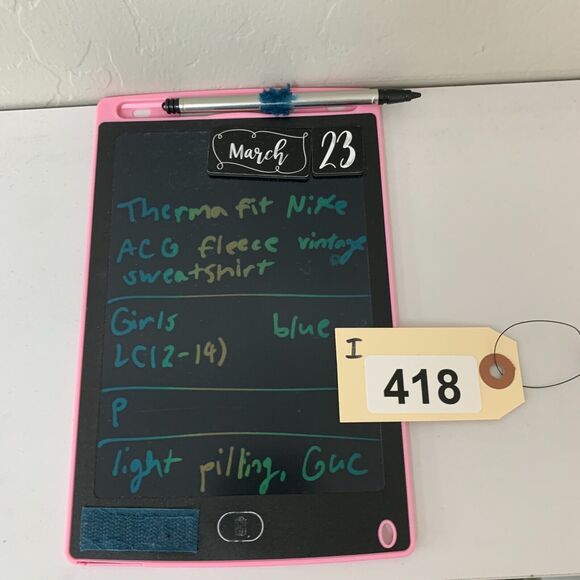 March 23
Therma fit Nike
ACG fleece vintage
sweatshirt
Girls blue
LC(12-14)
I
418
P
light pilling, GUC